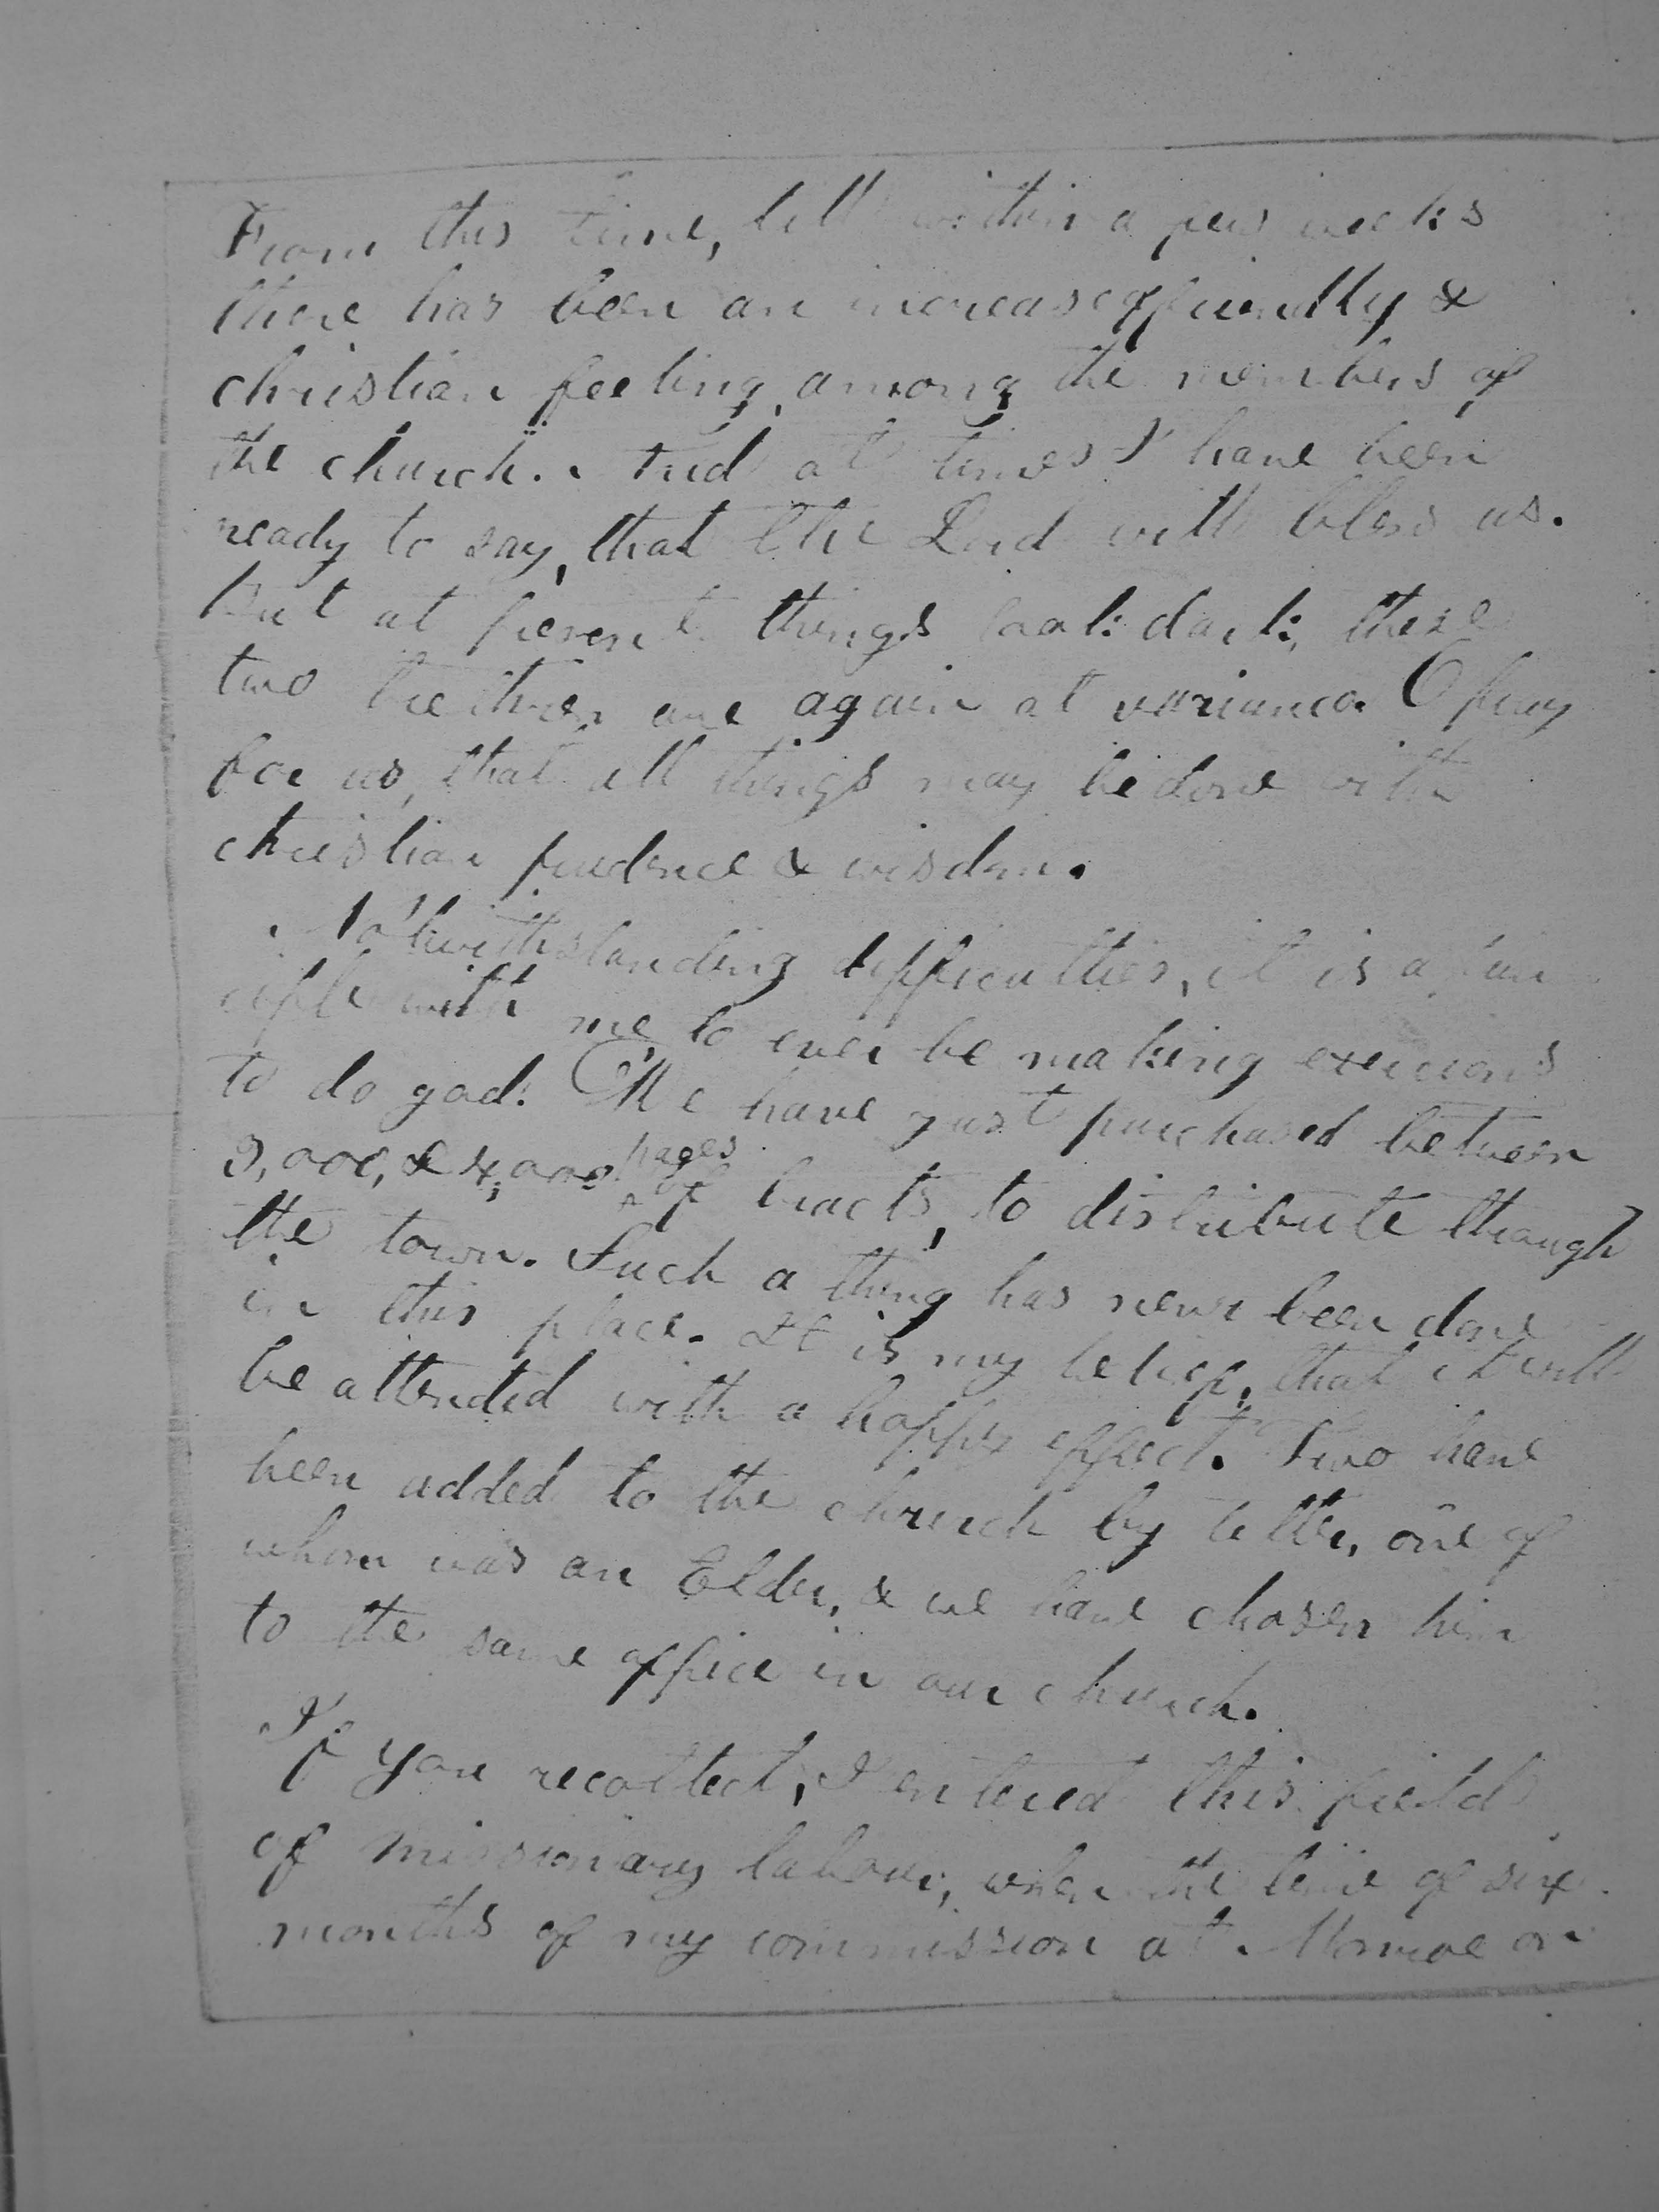 From this time, till within a few weeks
there has been an increase of friendly &
christian feeling, among the members of
the church. And at times I have been
ready to say, that the Lord will bless us.
But at present things look dark, these
two brethren are again at variance. O pray
for us, that all things may be done with
christian prudence & wisdom.
Notwithstanding difficulties, it is a prin
ciple with me, to ever be making exertions
to do good. We have just purchased between
3,000, & 4,000 pages of tracts, to distribute through
the town. Such a thing has never been done
in this place. It is my belief, that it will
be attended with a happy effect. Two have
been added to the church by letter, one of
whom was an Elder, & we have chosen him
to the same office in our church.
If you recollect, I entered this field
of missionary labour, when the time of six
months of my commission at Monroe on